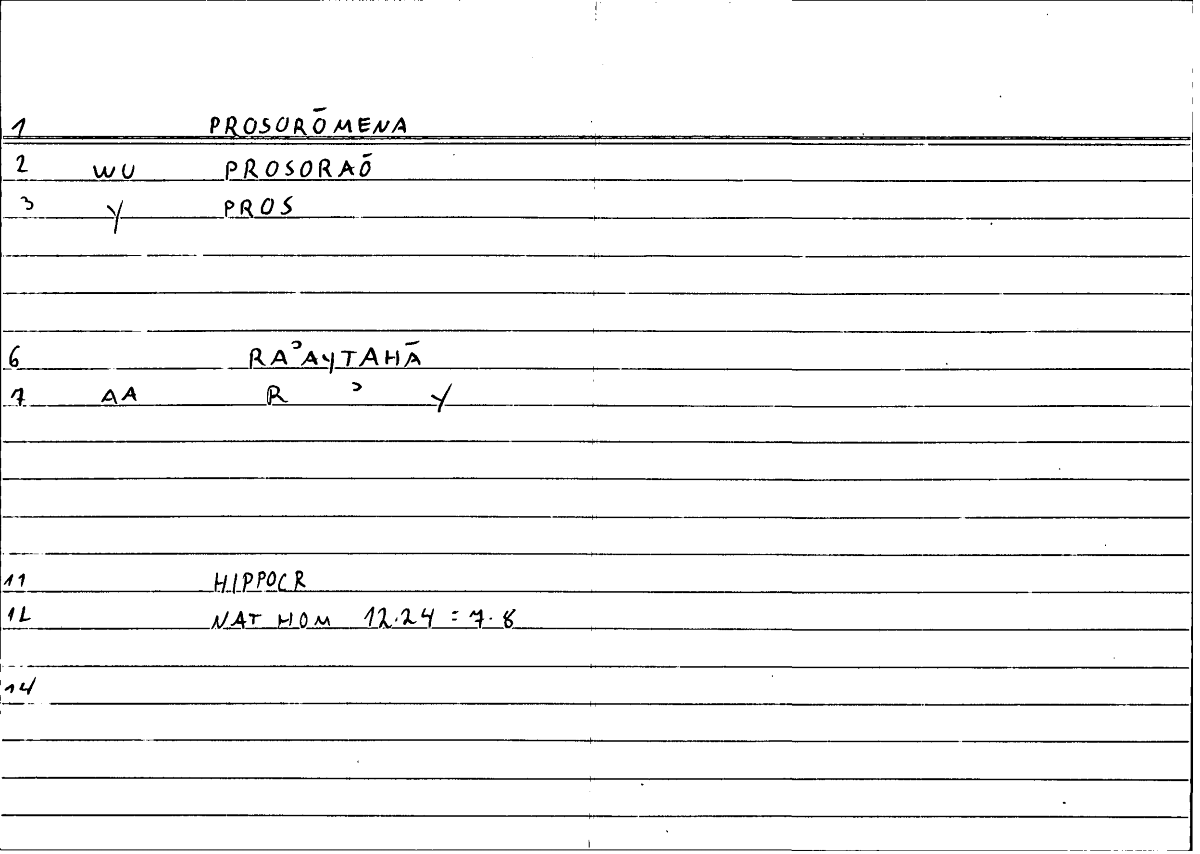 1 PROSORŌMENA
2 WU PROSORAŌ
3 Y PROS
6 RAʾAYTAHĀ
7 AA R ʾ Y
11 HIPPOCR
12 NAT HOM 12.24 = 7.8
14